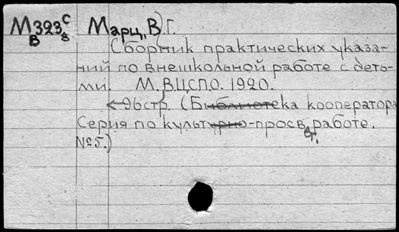 М323 С Марц, В. Г.
В 8
Сборник практических указа-
ний по внешкольной работе с деть-
ми. М. ВЦСПО. 1920.
96 стр. (Библиотека кооператора
Серия по культурно-просв. работе.
№5.)